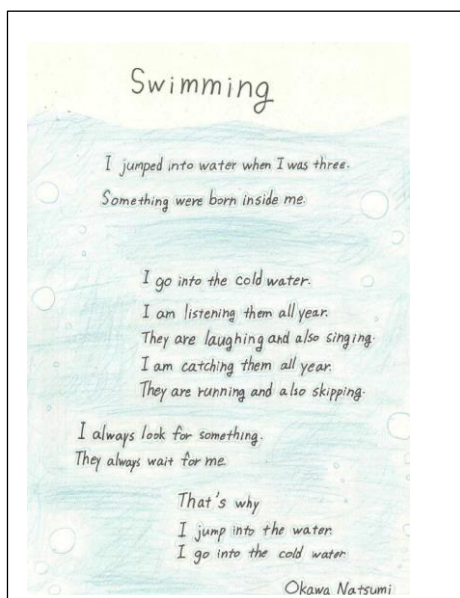 Swimming
I jumped into water when I was three.
Something were born inside me.
I go into the cold water.
I am listening them all year.
They are laughing and also singing.
I am catching them all year.
They are running and also skipping.
I always look for something.
They always wait for me.
That's why
I jump into the water.
I go into the cold water
Okawa Natsumi